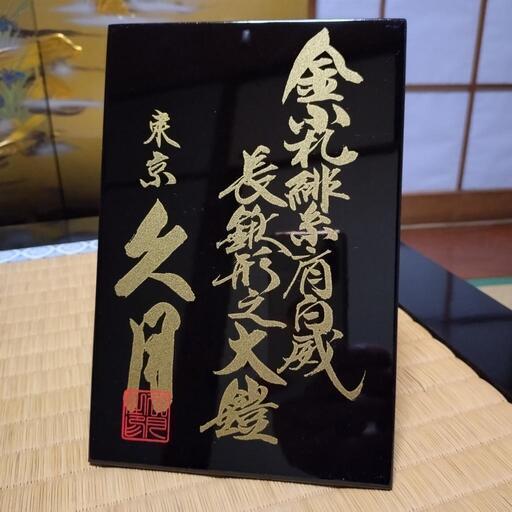 金小札緋糸肩白威
長鍬形之大鎧
東京
久月